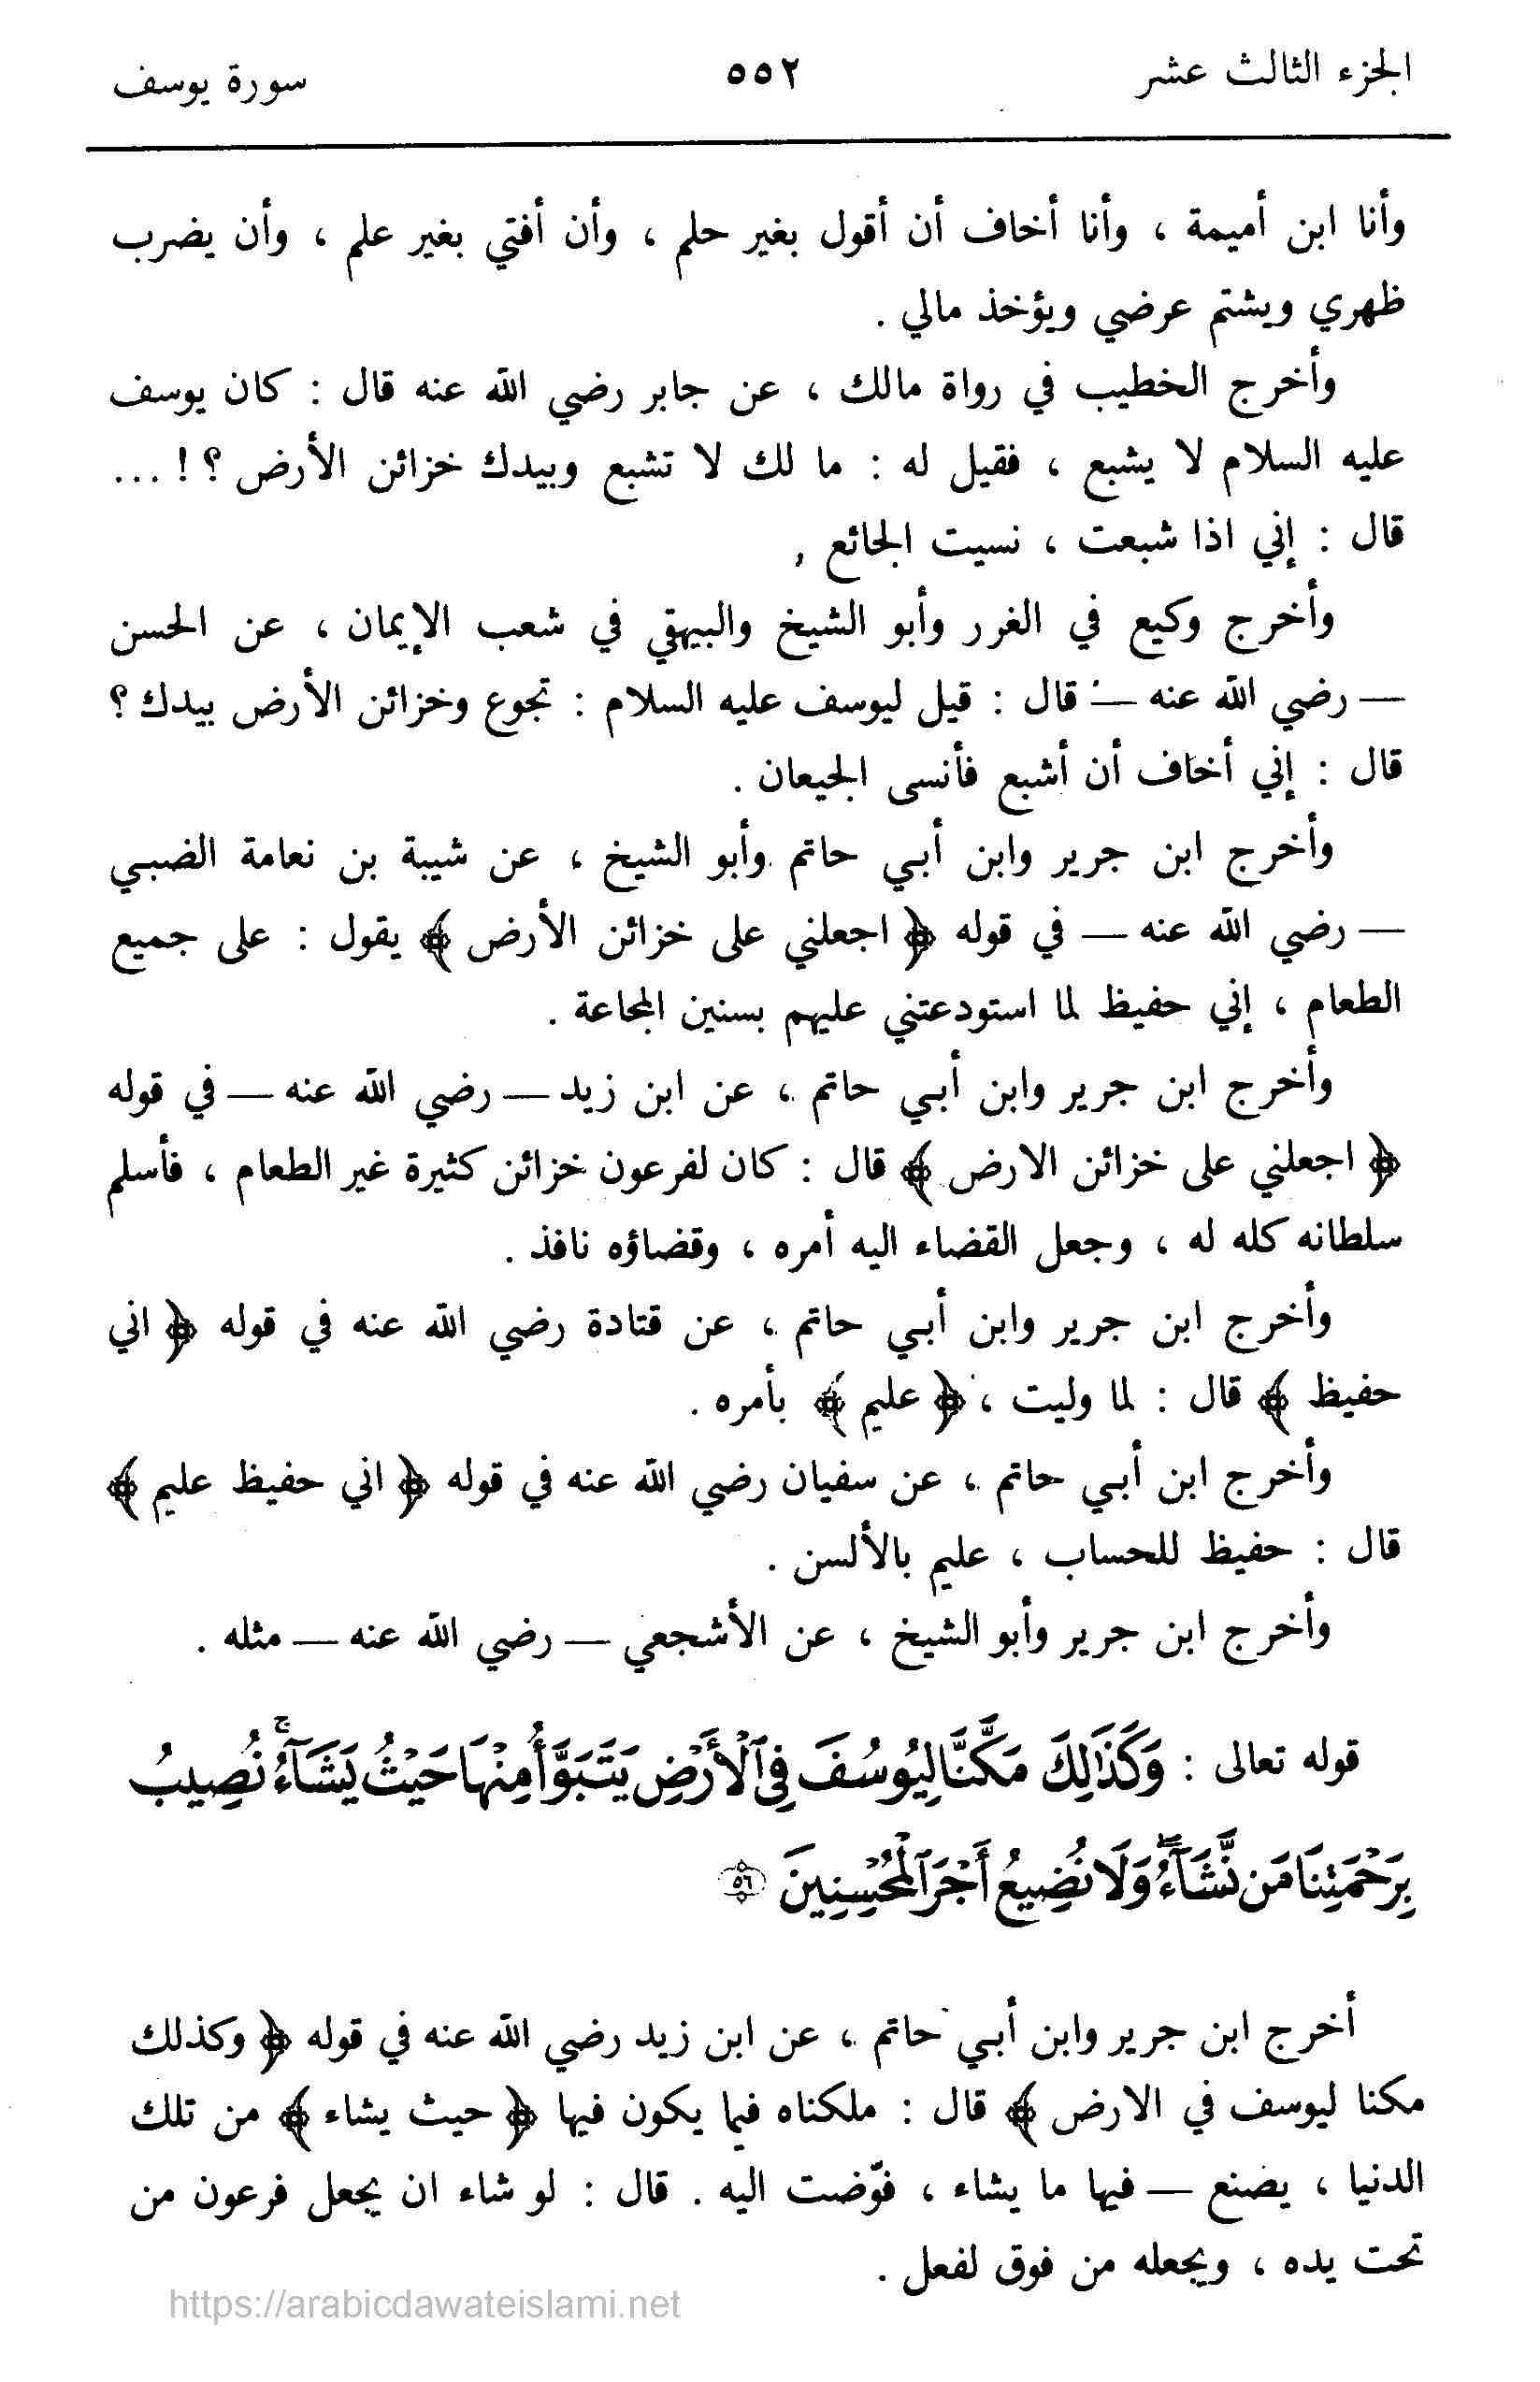 الجزء الثالث عشر ٥٥٢ سورة يوسف
وأنا ابن أميمة ، وأنا أخاف أن أقول بغير حلم ، وأن أفتي بغير علم ، وأن يضرب
ظهري ويشتم عرضي ويؤخذ مالي .
وأخرج الخطيب في رواة مالك ، عن جابر رضي الله عنه قال : كان يوسف
عليه السلام لا يشبع ، فقيل له : ما لك لا تشبع وبيدك خزائن الأرض ؟ ! ...
قال : إني اذا شبعت ، نسيت الجائع ,
وأخرج وكيع في الغرر وأبو الشيخ والبيهقي في شعب الإيمان ، عن الحسن
— رضي الله عنه — قال : قيل ليوسف عليه السلام : تجوع وخزائن الأرض بيدك ؟
قال : إني أخاف أن أشبع فأنسى الجيعان .
وأخرج ابن جرير وابن أبي حاتم وأبو الشيخ ، عن شيبة بن نعامة الضبي
— رضي الله عنه — في قوله ﴿ اجعلني على خزائن الأرض ﴾ يقول : على جميع
الطعام ، إني حفيظ لما استودعتني عليهم بسنين المجاعة .
وأخرج ابن جرير وابن أبي حاتم ، عن ابن زيد — رضي الله عنه — في قوله
﴿ اجعلني على خزائن الارض ﴾ قال : كان لفرعون خزائن كثيرة غير الطعام ، فأسلم
سلطانه كله له ، وجعل القضاء اليه أمره ، وقضاؤه نافذ .
وأخرج ابن جرير وابن أبي حاتم ، عن قتادة رضي الله عنه في قوله ﴿ اني
حفيظ ﴾ قال : لما وليت ، ﴿ عليم ﴾ بأمره .
وأخرج ابن أبي حاتم ، عن سفيان رضي الله عنه في قوله ﴿ اني حفيظ عليم ﴾
قال : حفيظ للحساب ، عليم بالألسن .
وأخرج ابن جرير وأبو الشيخ ، عن الأشجعي — رضي الله عنه — مثله .
قوله تعالى : وَكَذَٰلِكَ مَكَّنَّا لِيُوسُفَ فِي ٱلْأَرْضِ يَتَبَوَّأُ مِنْهَا حَيْثُ يَشَآءُ ۚ نُصِيبُ
بِرَحْمَتِنَا مَن نَّشَآءُ ۖ وَلَا نُضِيعُ أَجْرَ ٱلْمُحْسِنِينَ ٥٦
أخرج ابن جرير وابن أبي حاتم ، عن ابن زيد رضي الله عنه في قوله ﴿ وكذلك
مكنا ليوسف في الارض ﴾ قال : ملكناه فيما يكون فيها ﴿ حيث يشاء ﴾ من تلك
الدنيا ، يصنع — فيها ما يشاء ، فوّضت اليه . قال : لو شاء ان يجعل فرعون من
تحت يده ، ويجعله من فوق لفعل .
https://arabicdawateislami.net